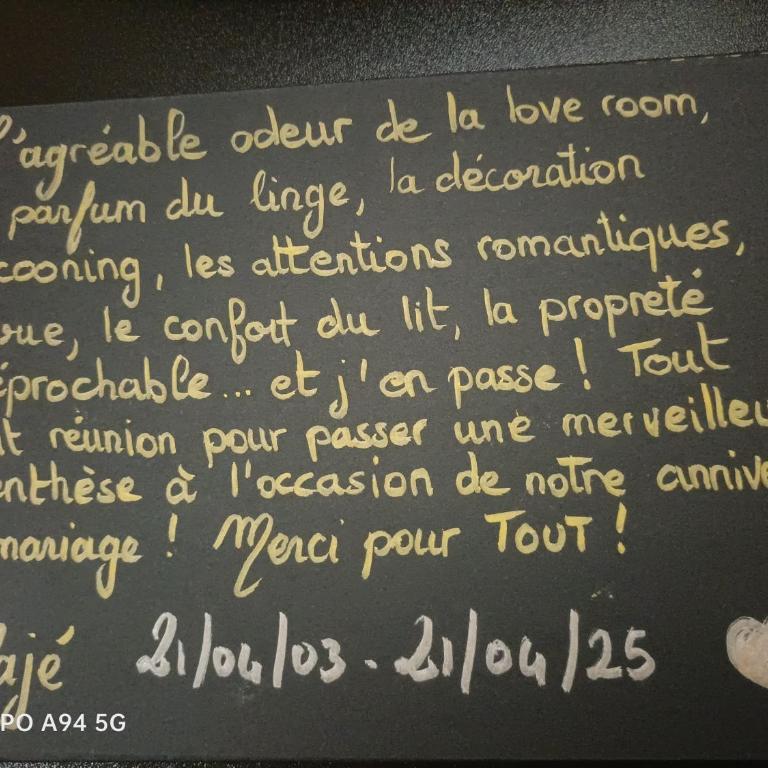 l'agréable odeur de la love room,
parfum du linge, la décoration
cooning, les attentions romantiques,
vue, le confort du lit, la propreté
éprochable... et j'en passe ! Tout
it réunion pour passer une merveilleu
enthèse à l'occasion de notre annive
mariage ! Merci pour TOUT !
ajé 21/04/03 - 21/04/25
PO A94 5G